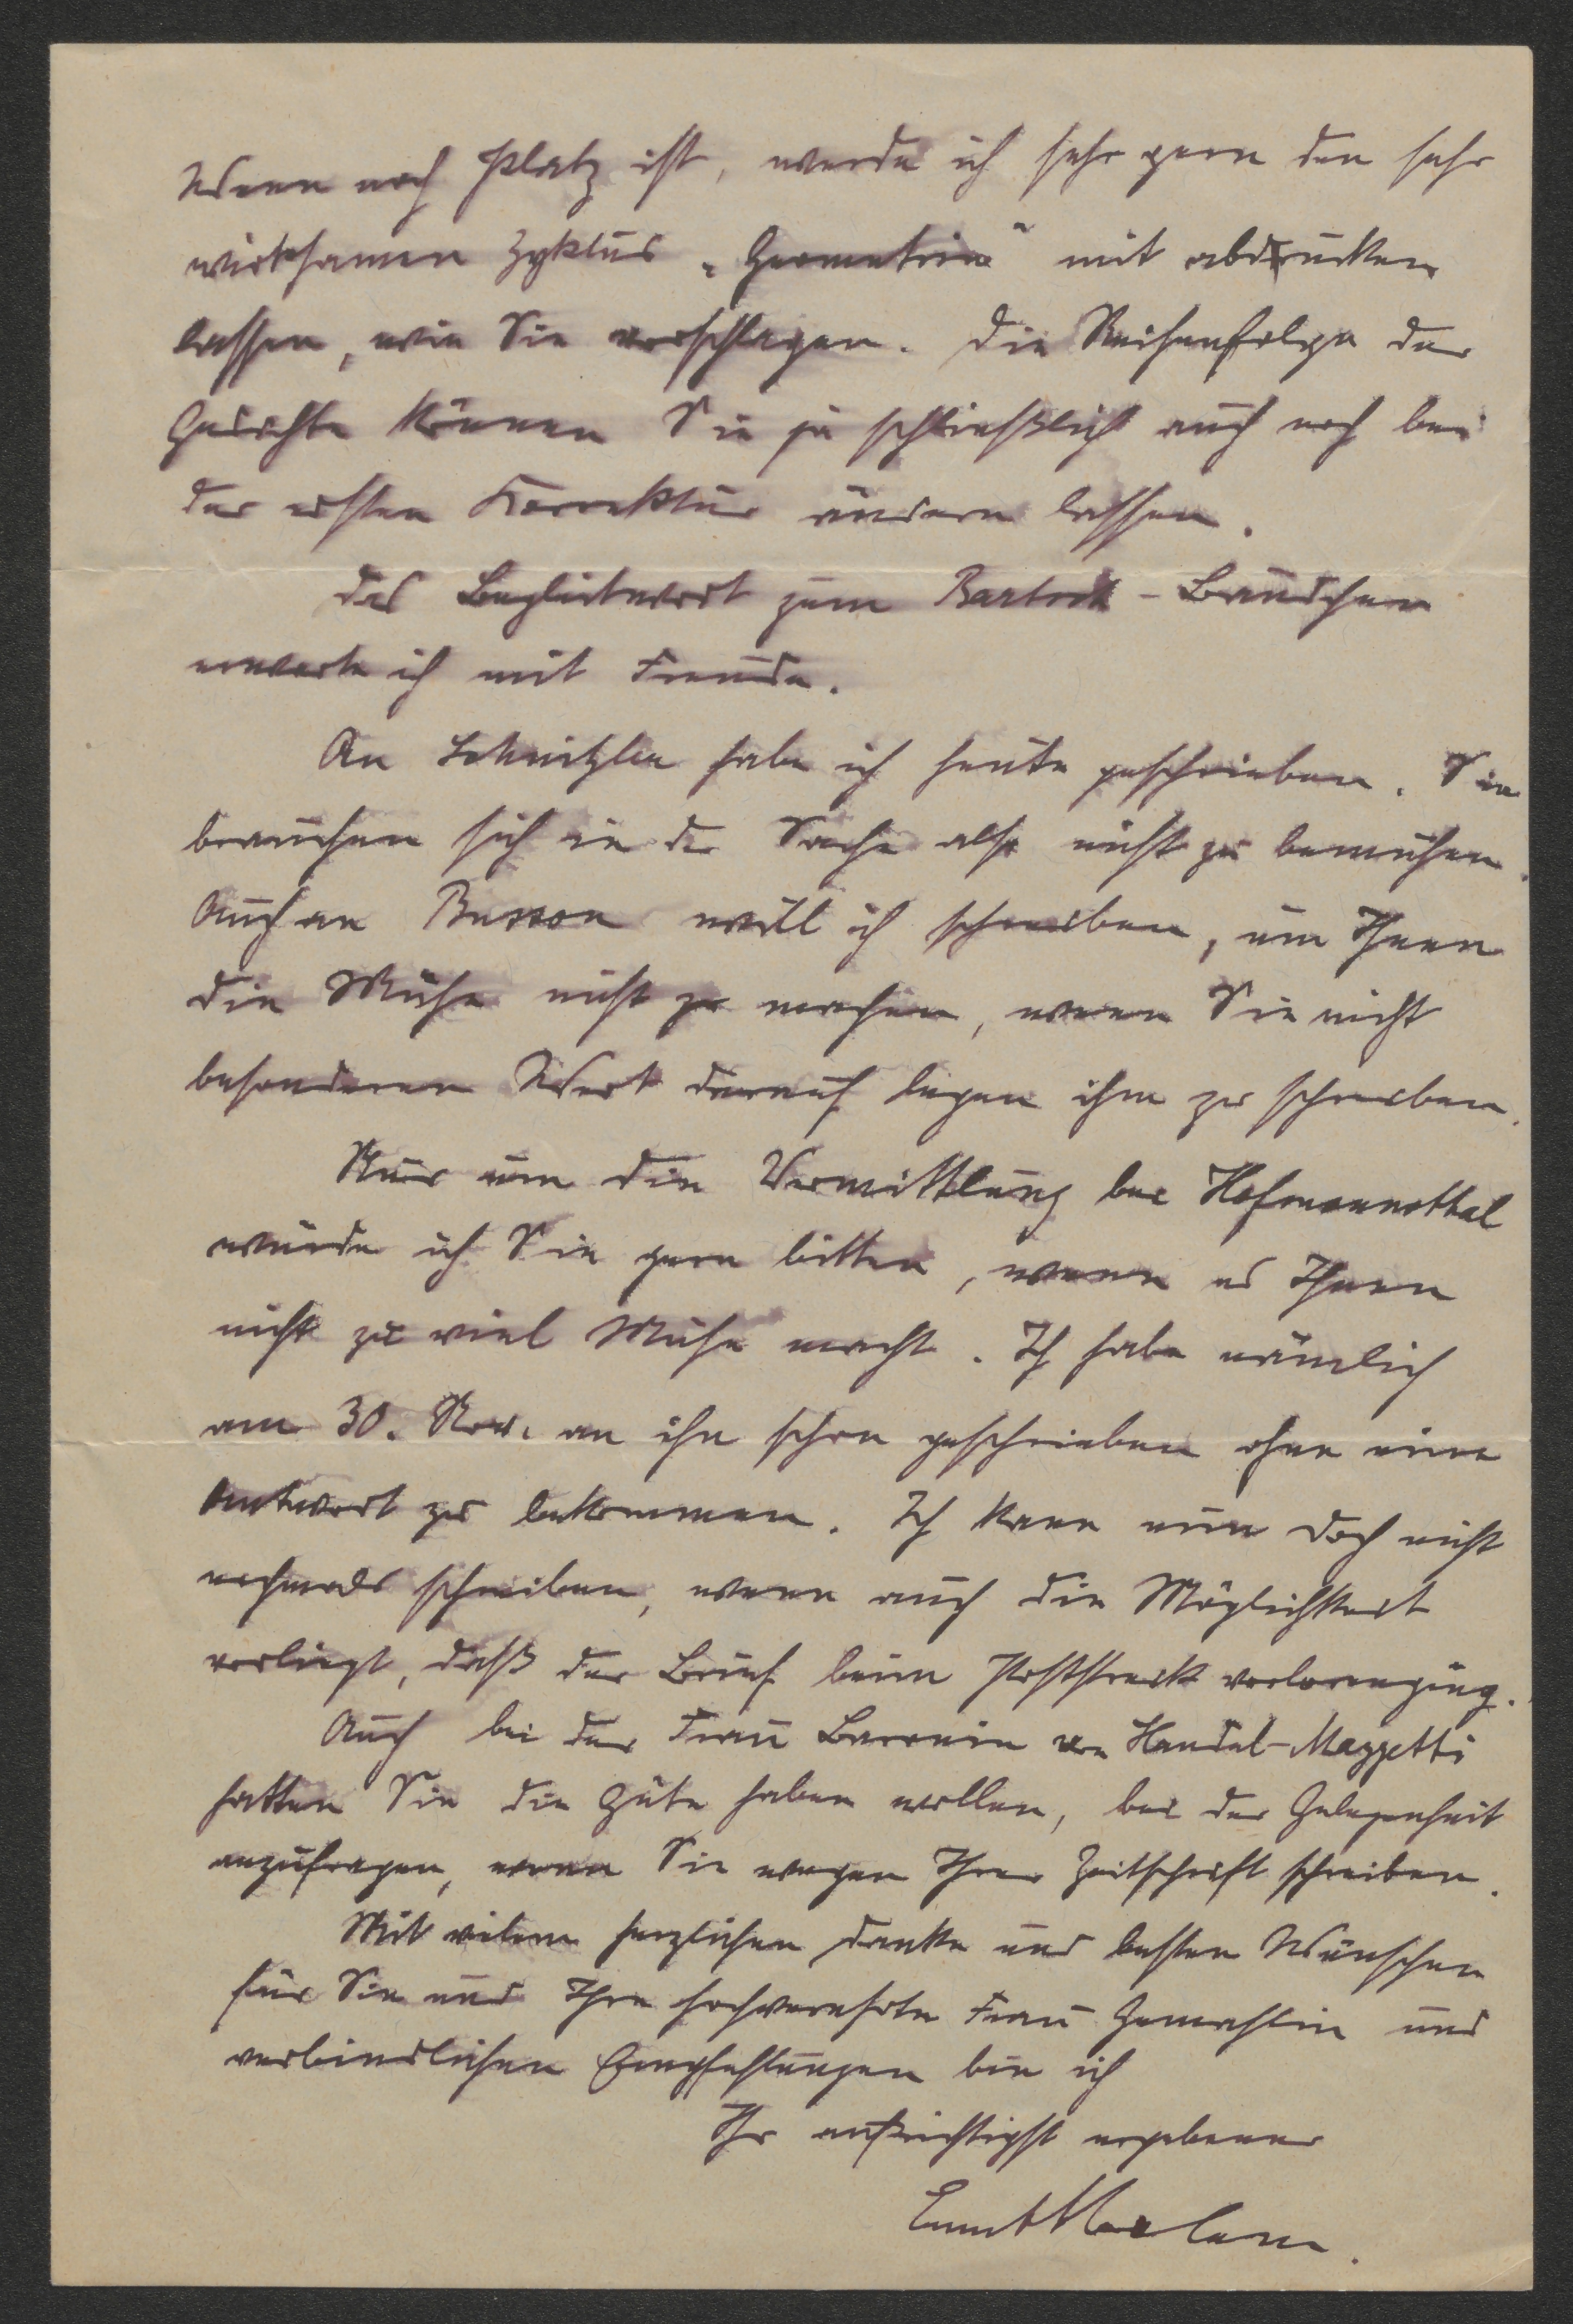 Wenn noch Platz ist, werde ich sehr gern den sehr
wirksamen Zyklus „Geometrie“ mit abdrucken
lassen, wie Sie vorschlagen. Die Reihenfolge der
Gedichte können Sie ja schließlich auch noch bei
der ersten Korrektur ändern lassen.
Das Begleitwort zum Bartsch-Bändchen
erwarte ich mit Freude.
An Schnitzler habe ich heute geschrieben. Sie
brauchen sich in der Sache also nicht zu bemühen.
Auch an Busson will ich schreiben, um Ihnen
die Mühe nicht zu machen, wenn Sie nicht
besonderen Wert darauf legen ihm zu schreiben.
Nur um die Vermittlung bei Hofmannsthal
würde ich Sie gern bitten, wenn es Ihnen
nicht zu viel Mühe macht. Ich habe nämlich
am 30. Nov. an ihn schon geschrieben ohne eine
Antwort zu bekommen. Ich kann nun doch nicht
nochmals schreiben, wenn auch die Möglichkeit
vorliegt, daß der Brief beim Poststreik verlorenging.
Auch bei der Frau Baronin von Handel-Mazzetti
hatten Sie die Güte haben wollen, bei der Gelegenheit
anzufragen, wenn Sie wegen Ihrer Zeitschrift schreiben.
Mit vielem herzlichen Danke und besten Wünschen
für Sie und Ihre hochverehrte Frau Gemahlin und
verbindlichen Empfehlungen bin ich
Ihr aufrichtigst ergebener